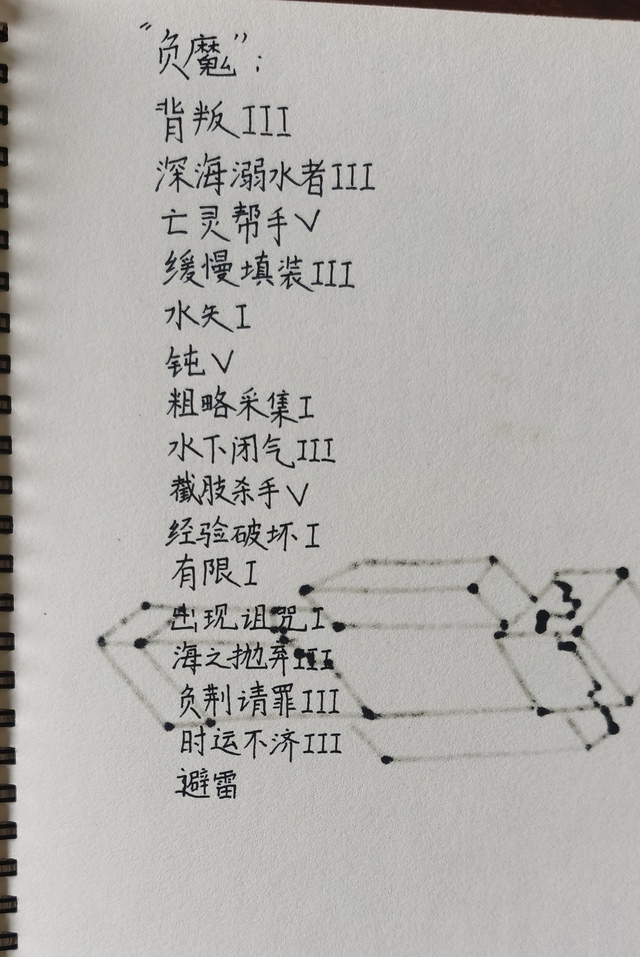 “负魔”：
背叛III
深海溺水者III
亡灵帮手V
缓慢填装III
水矢I
钝V
粗略采集I
水下闭气III
截肢杀手V
经验破坏I
有限I
出现诅咒I
海之抛弃III
负荆请罪III
时运不济III
避雷